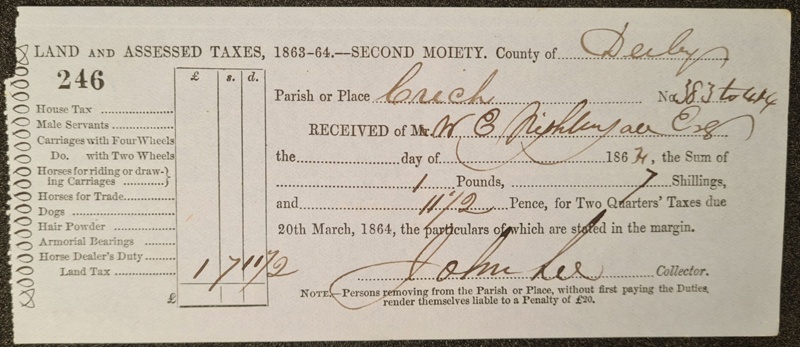 LAND AND ASSESSED TAXES, 1863-64.—SECOND MOIETY. County of Derby
246
£ s. d.
Parish or Place Crich No. 383 to 414
House Tax
Male Servants
RECEIVED of Mr W E Nightingale Esq
Carriages with Four Wheels
Do. with Two Wheels
the day of 1864, the Sum of
Horses for riding or draw-}
ing Carriages }
1 Pounds, 7 Shillings,
Horses for Trade
Dogs
and 11 1/2 Pence, for Two Quarters' Taxes due
Hair Powder
20th March, 1864, the particulars of which are stated in the margin.
Armorial Bearings
Horse Dealer's Duty
Land Tax 1 7 11 1/2
John Lee Collector.
£
NOTE.—Persons removing from the Parish or Place, without first paying the Duties,
render themselves liable to a Penalty of £20.